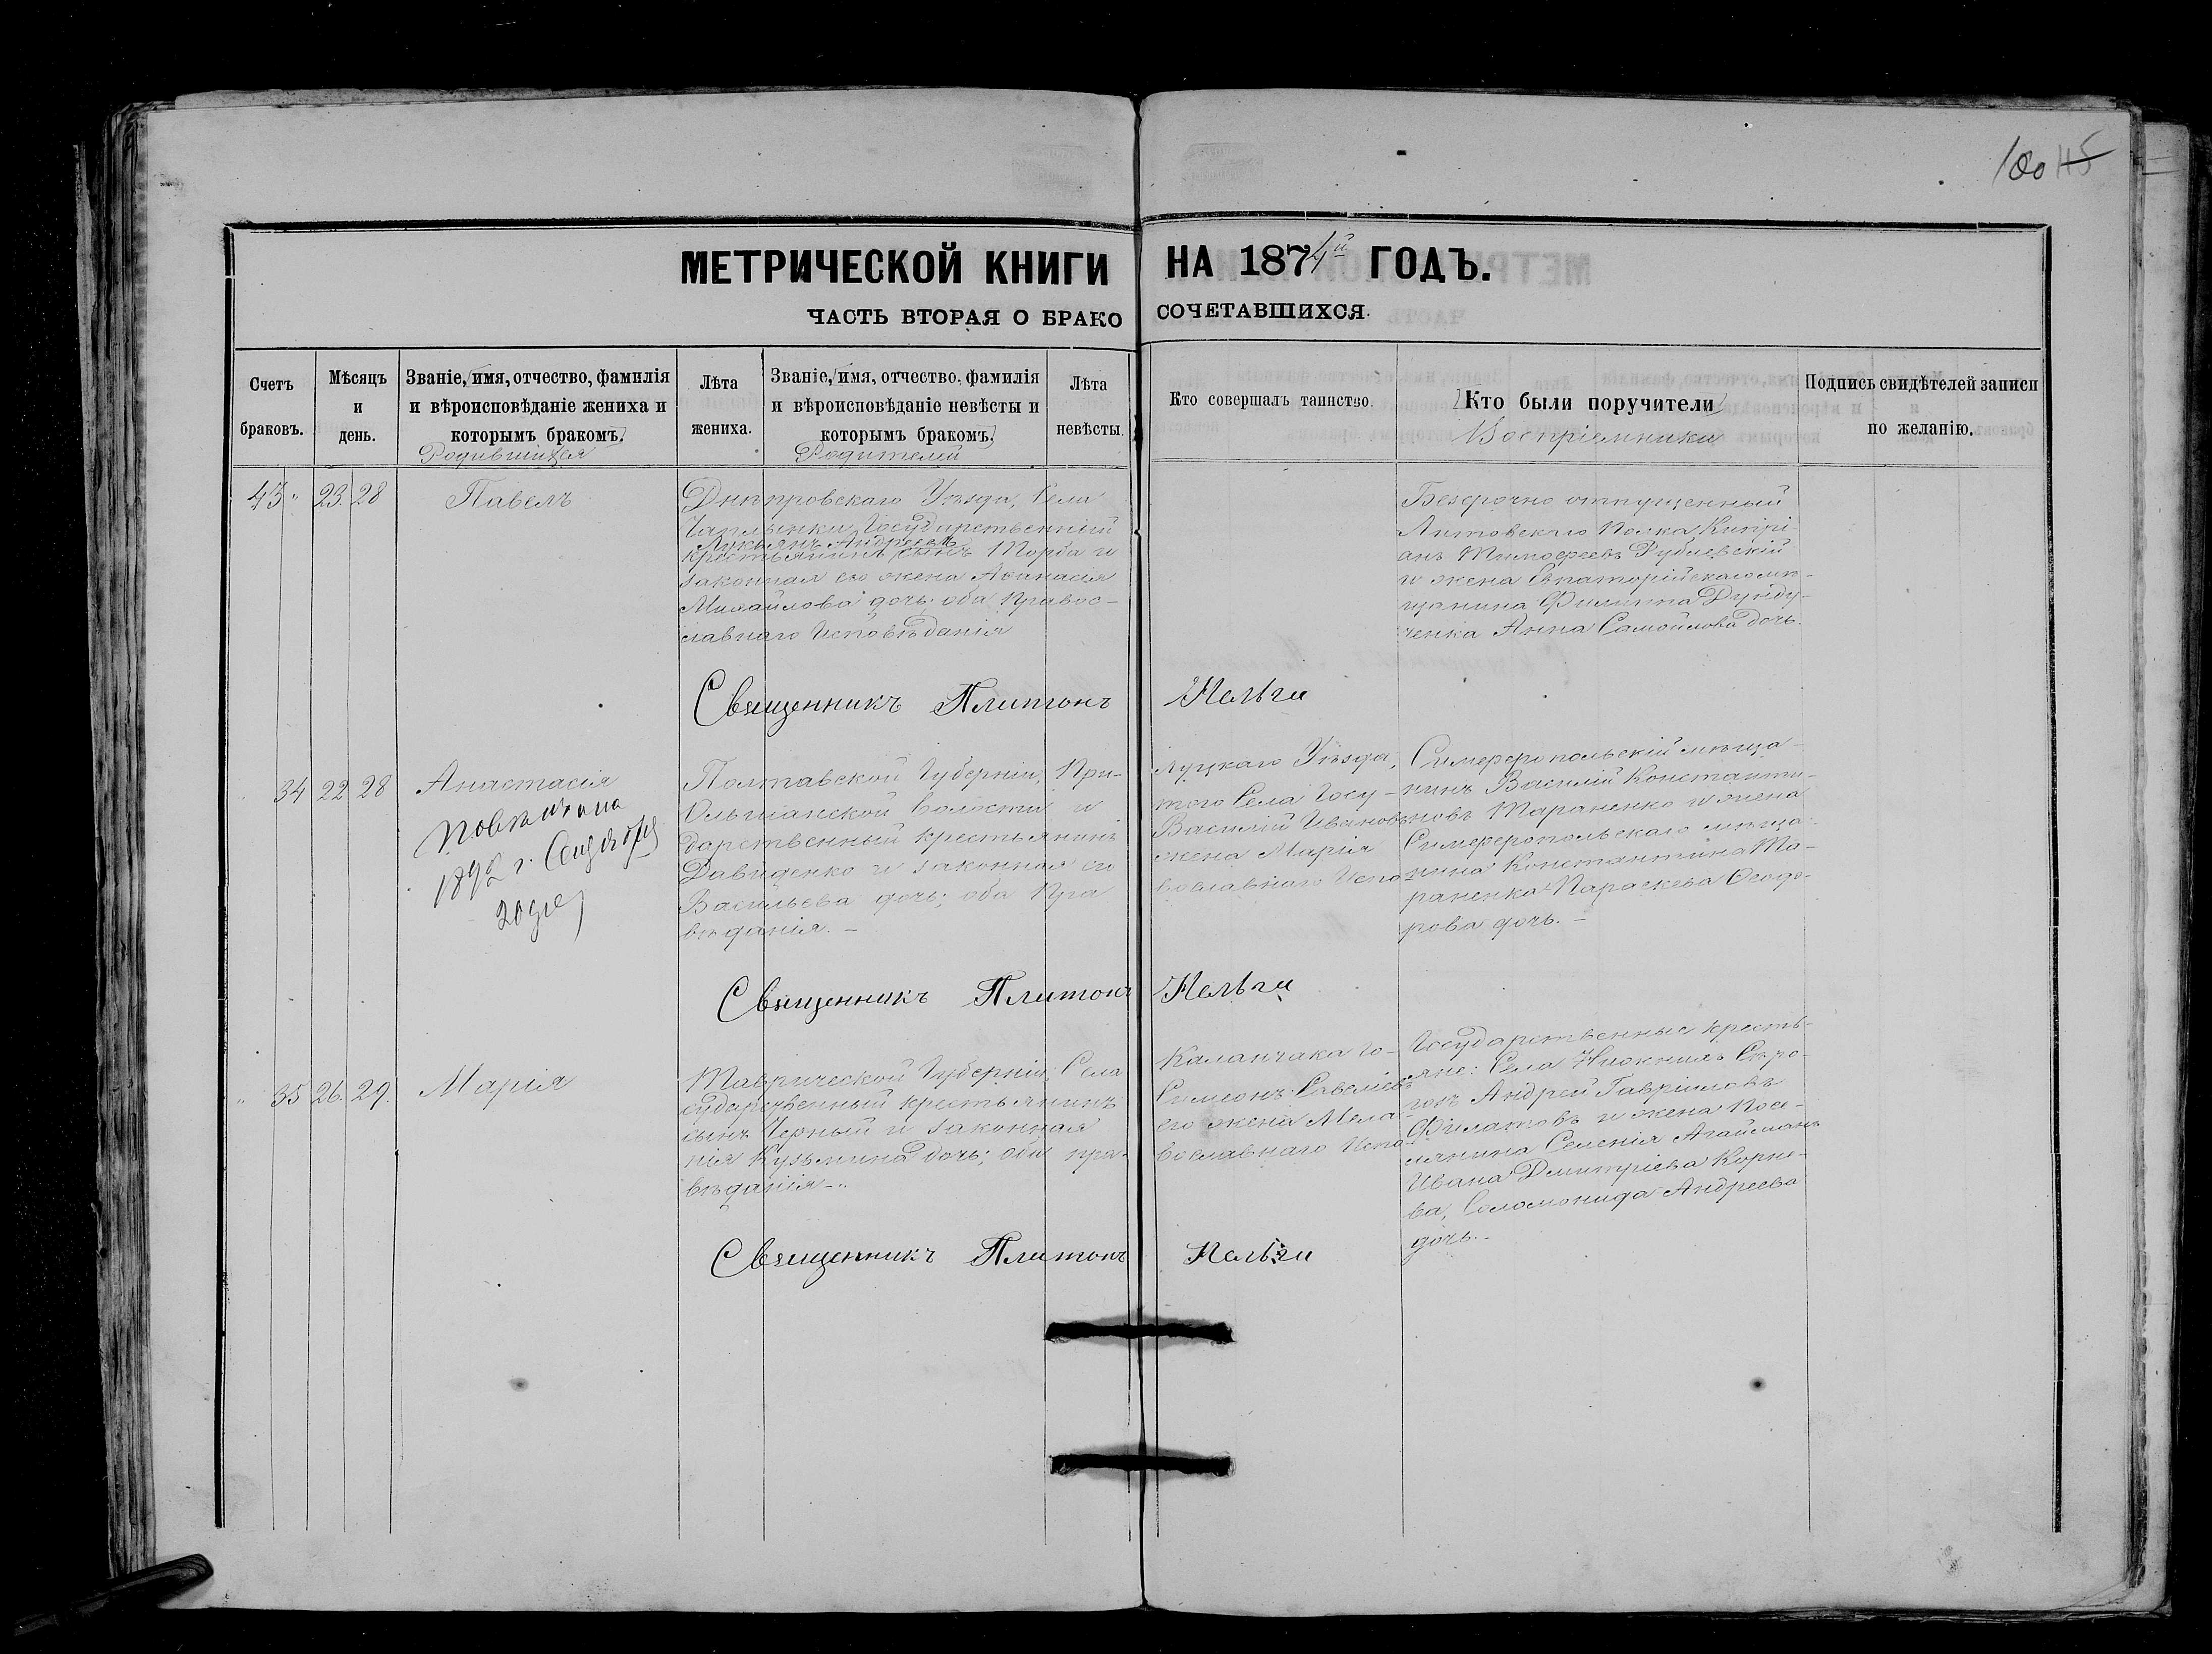 100 115
МЕТРИЧЕСКОЙ КНИГИ НА 1874й ГОДЪ.
ЧАСТЬ ВТОРАЯ О БРАКОСОЧЕТАВШИХСЯ.
Счетъ браковъ.
Мѣсяцъ и день.
Званіе, имя, отчество, фамилія
и вѣроисповѣданіе жениха и
которымъ бракомъ.
Родившихся
Лѣта
жениха.
Званіе, имя, отчество, фамилія
и вѣроисповѣданіе невѣсты и
которымъ бракомъ.
Родителей
Лѣта
невѣсты.
Кто совершалъ таинство.
Кто были поручители
Воспріемники
Подпись свидѣтелей записи
по желанію.
43 " 23. 28 Павелъ
Днѣпровскаго Уѣзда, Села
Чаплынки Государственный
Лукьянъ Андреевъ
крестьянинъ сынъ Торба и
законная его жена Афанасія
Михайлова дочь; оба Правос-
лавнаго Исповѣданія
Безсрочно отпущенный
Литовскаго Полка Кипрі-
анъ Тимофеевъ Рублевскій
и жена Евпаторійскаго мѣ-
щанина Филиппа Дунду-
ченка Анна Самойлова дочь.
Священникъ Платонъ
34 22 28 Анастасія
Повѣнчана
1892 г. Сентября
20 дня
Полтавской Губерніи, При-луцкаго Уѣзда,
Ольшанской Волости и того Села Госу-
дарственный крестьянинъ Василій Ивановъ
Давиденко и законная его жена Марія
Васильева дочь; оба Православнаго Испо-
вѣданія. –
Симферопольскій мѣща-
нинъ Василій Константи-
новъ Тараненко и жена
Симферопольскаго мѣща-
нина Константина Та-
раненка Параскева Феодо-
рова дочь. –
Священникъ Платонъ
" 35 26. 29. Марія
Таврической Губерніи, Села Каланчака Го-
сударственный крестьянинъ Симеонъ Савеліевъ
сынъ Черный и законная его жена Мела-
нія Кузьмина дочь; оба православнаго Испо-
вѣданія –.
Государственные кресть-
яне: Села Нижнихъ Сѣро-
гозъ Андрей Гавриловъ
Филатовъ и жена Посе-
лянина Селенія Агаймань
Ивана Дмитріева Корне-
ва, Соломонида Андреева
дочь. –
Священникъ Платонъ